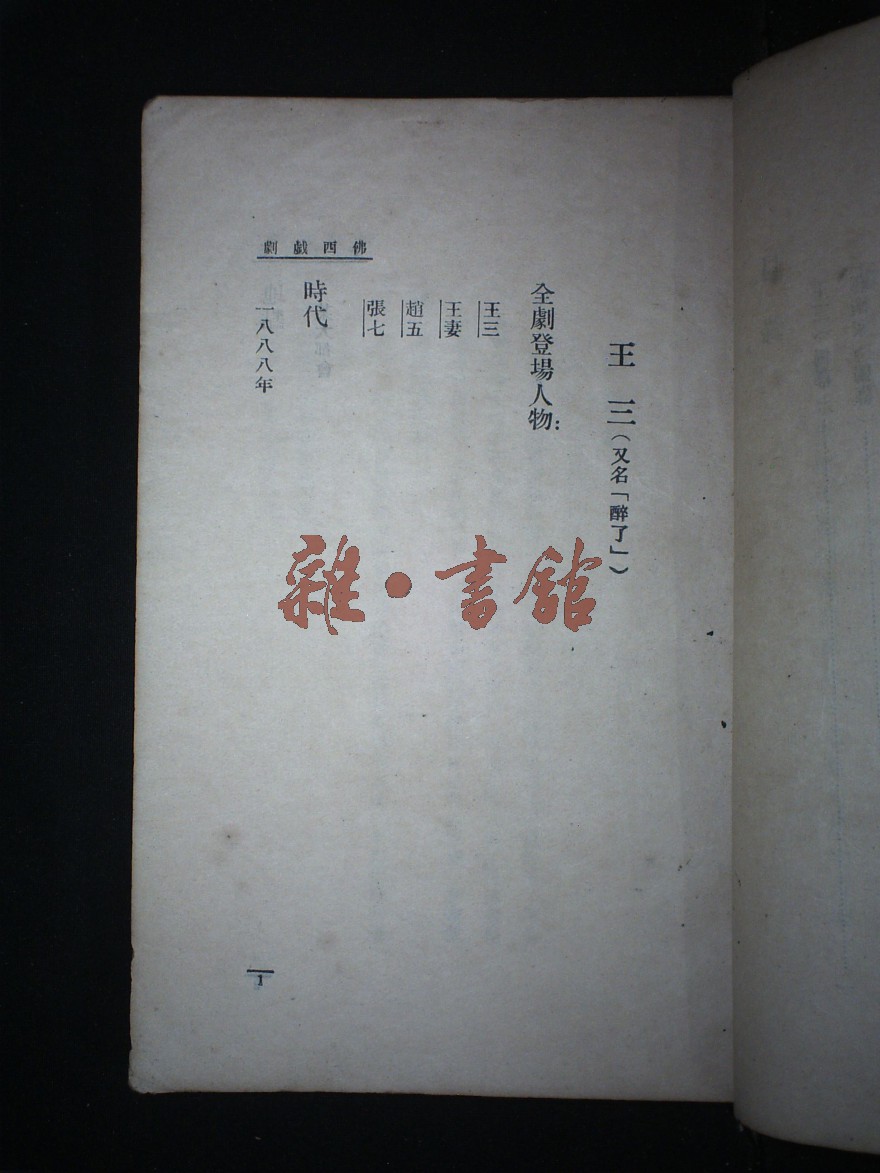 王三（又名「醉了」）
全劇登場人物：
王三
王妻
趙五
張七
時代
一八八八年
劇戯西佛
1
雜·書館